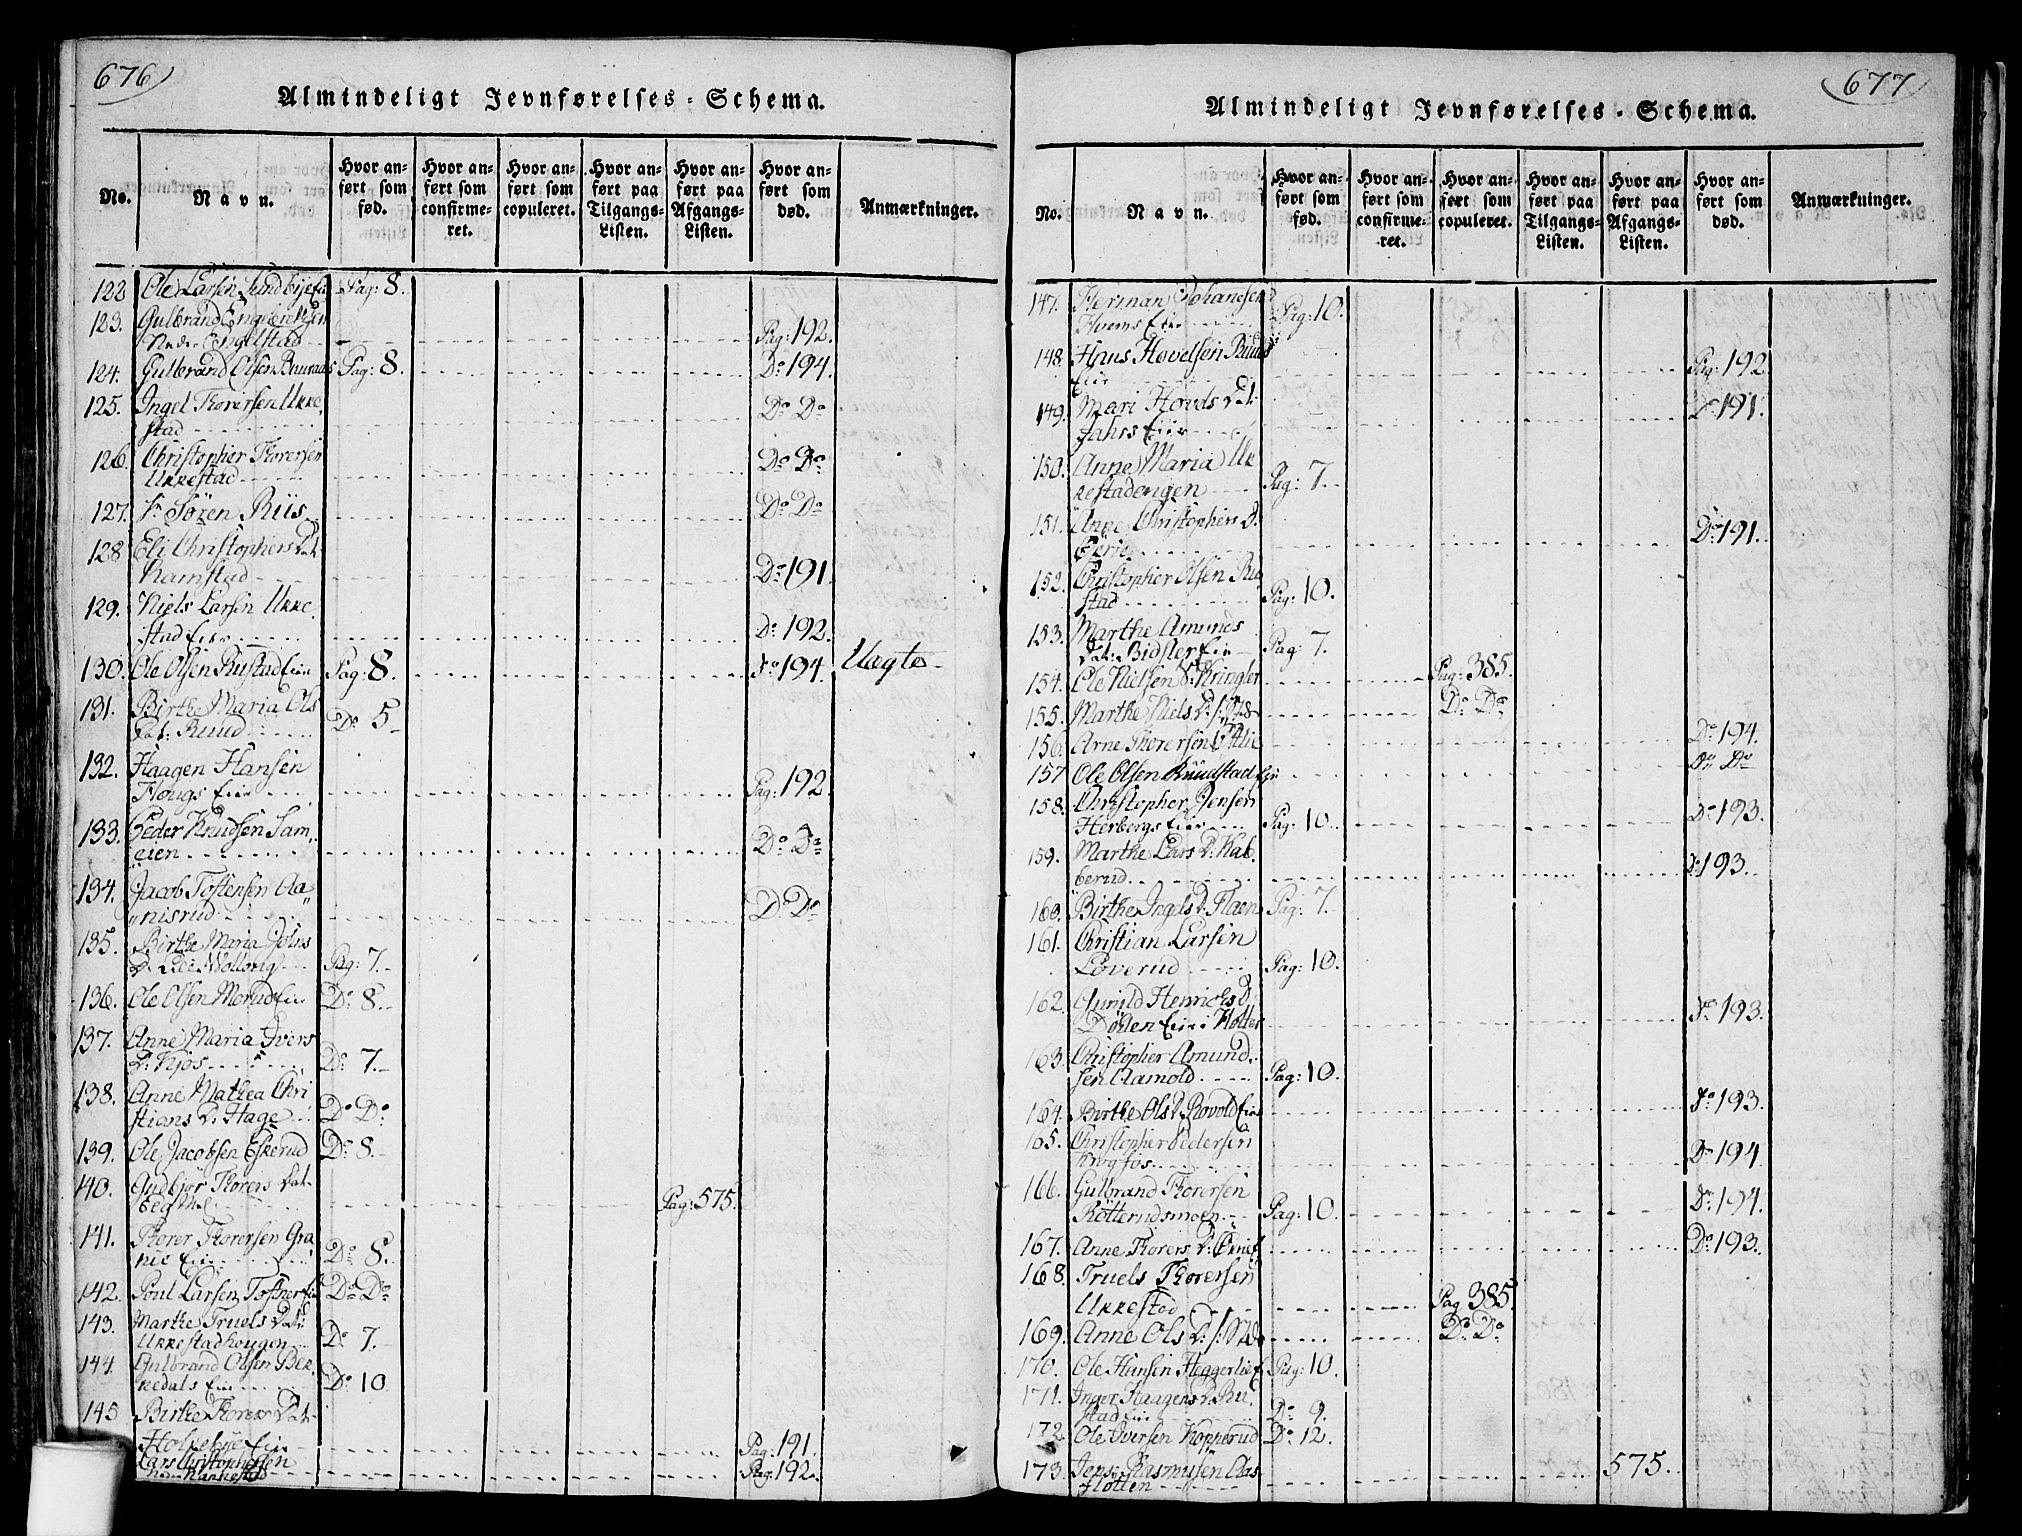 676
Almindeligt Jevnførelses-Schema.
No. Navn. Hvor anført som fød. Hvor anført som confirmeret. Hvor anført som copuleret. Hvor anført paa Tilgangs-Listen. Hvor anført paa Afgangs-Listen. Hvor anført som død. Anmærkninger.
122 Ole Larsen Sundbyeeie Pag: 8.
123. Gulbrand Engebretsen
Nedre Engelstad Pag: 192.
124. Gulbrand Olsen Pag: 8. Do 194.
125. Ingel Thorersen Ukke,
stad Do Do
126. Christopher Thorersen
Ukkestad Do Do
127. Hr Sören Riis Do Do
128 Eli Christophers Dat:
Ramstad Do 191.
129. Niels Larsen Ukke,
stad Eier Do 192.
130. Ole Olsen Rustad Eie Pag: 8. Do 194. Uægte
131. Birthe Maria Ols
Dat: Ruud Do 5
132. Haagen Hansen
Hougs Eie Pag: 192.
133. Peder Knudsen Sam,
eien Do Do
134. Jacob Tostensen Aa,,
,,nisrud Do Do
135. Birthe Maria Johns
D. Wollong Pag: 7.
136. Ole Olsen Morud Eie Do 8.
137. Anne Maria Ivers
D. Kjos Do 7.
138. Anne Mathea Chri
stians D. Hage Do Do
139. Ole Jacobsen Eskerud Do 8.
140. Gudbjör Thorers Dat.
Pag: 575.
141. Thorer Thorersen Gra,
nie Eie Do 8.
142. Poul Larsen Tostner Eie Do Do
143. Marthe Truels Dat:
Ukkestadhougen Do 7.
144. Gulbrand Olsen Bek
kedals Eie Do 10
145 Birthe Thorers Dat.
Holsebye Eie Pag: 191.
Lars Christophersen
Pag: 192.
677
Almindeligt Jevnførelses-Schema.
No. Navn. Hvor anført som fød. Hvor anført som confirmeret. Hvor anført som copuleret. Hvor anført paa Tilgangs-Listen. Hvor anført paa Afgangs-Listen. Hvor anført som død. Anmærkninger.
147. Herman Johansen
Hvems Eier Pag: 10.
148. Hans Hovelsen Ruuds
Eie Pag: 192
149. Mari Hovels Dat:
Jahrs Eier Do 191.
150. Anne Maria Uk
kestadengen Pag: 7.
151. Anne Christophers D.
Do 191.
152. Christopher Olsen Ru
stad Pag: 10.
153. Marthe Amunds
Dat: Bidsler Eie Pag: 7.
154. Ole Nielsen Kringler Pag: 385.
155. Marthe Niels D. Do Do
156. Arne Thorersen Do 194.
157 Ole Olsen Ruudstad Eie Do Do
158. Christopher Jensen
Herbergs Eier Pag: 10. Do 193.
159. Marthe Lars D. Kab,
berud Do 193.
160. Birthe Ingels D. Flaen Pag: 7.
161. Christian Larsen
Löverud Pag: 10.
162. Gunild Henrichs D.
Dölen Eie i Holter Do 193.
163. Christopher Amund
sen Aamold Pag: 10.
164. Birthe Ols D. Rovold Eie Do 193.
165. Christopher Pedersen
Krogfos Do 194.
166. Gulbrand Thorersen
Rötterudsmoen Pag: 10. Do 194.
167. Anne Thorers D. Do 193.
168. Truels Thorersen
Ukkestad Pag 385.
169. Anne Ols D. Do Do
170. Ole Hansen Heggerlie E. Pag: 10.
171. Inger Haagens D. Ru,
stad Eie Do 9.
172. Ole Iversen Kopperud Do 12.
173. Jens Rasmusen Aas,
flotten 575.